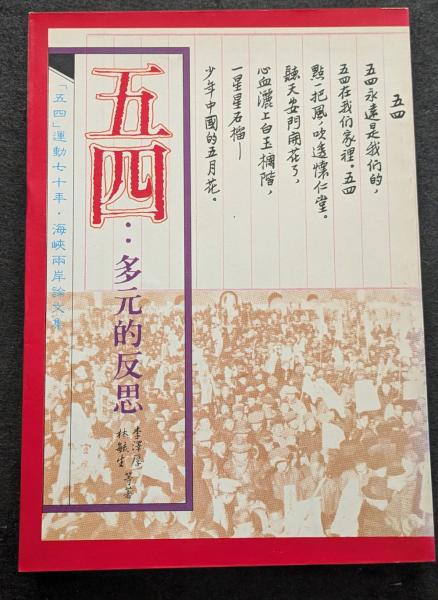 五四
五四永遠是我們的，
五四在我們家裡。五四
點一把風，吹透懷仁堂。
聽天安門開花了，
心血灑上白玉欄階，
一星星石榴—
少年中國的五月花。
五四：多元的反思
李澤厚
林毓生
等著
「五四」運動七十年・海峽兩岸論文集